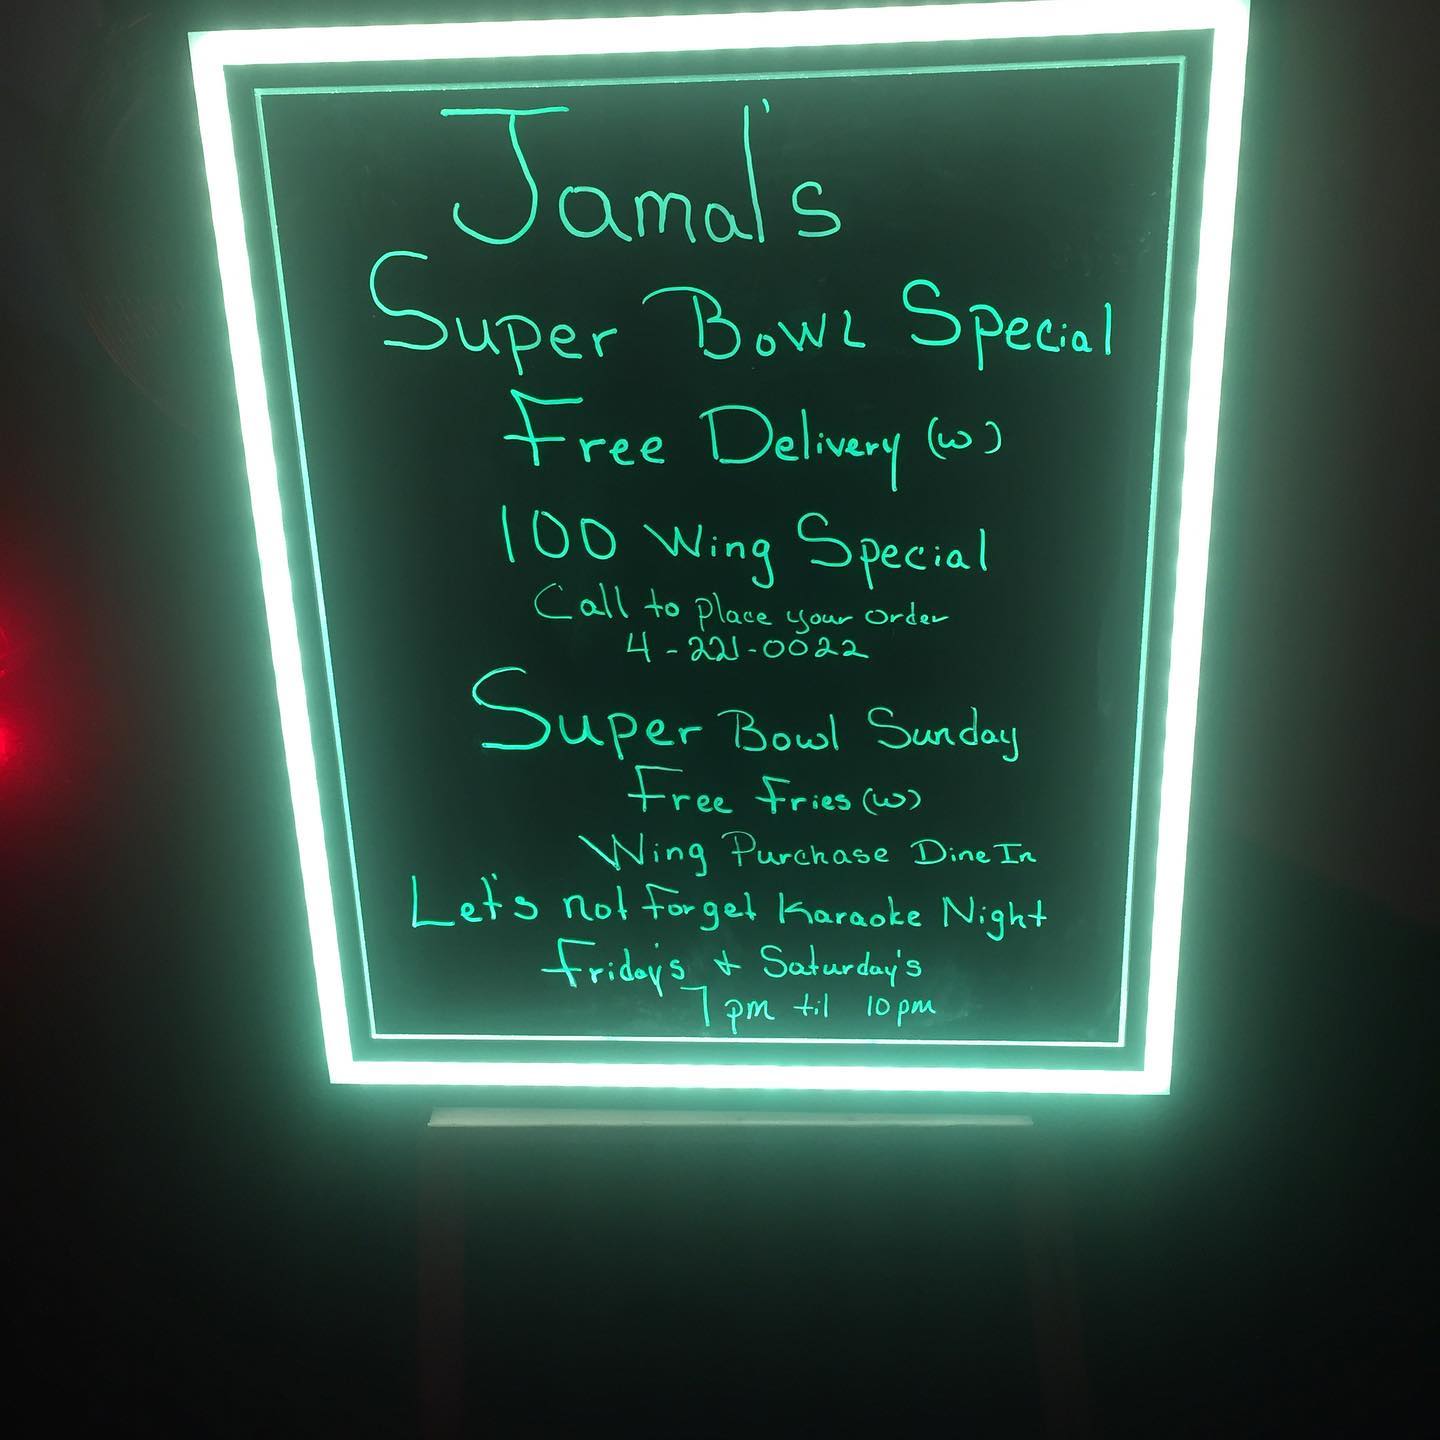 Jamal's
Super Bowl Special
Free Delivery (w)
100 Wing Special
Call to place your order
4-221-0022
Super Bowl Sunday
Free Fries (w)
Wing Purchase Dine In
Let's not forget Karaoke Night
Friday's + Saturday's
7pm til 10pm